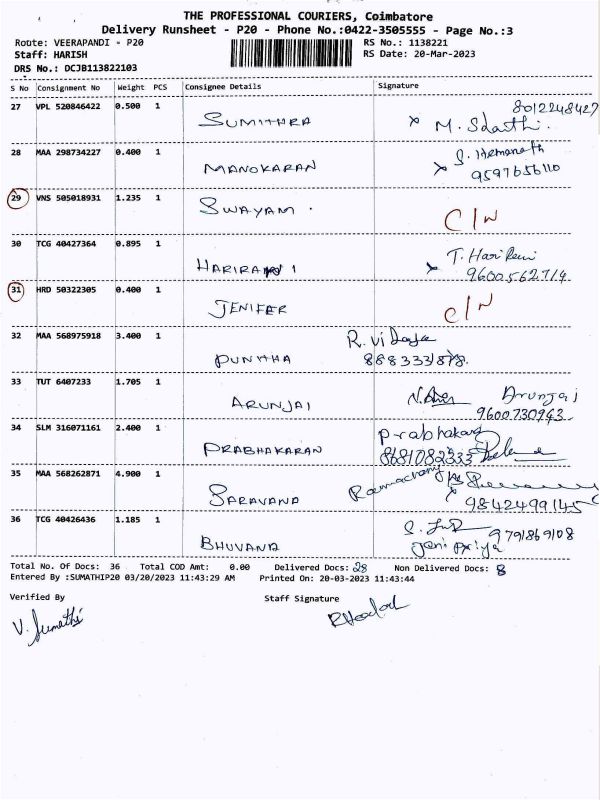 THE PROFESSIONAL COURIERS, Coimbatore
Delivery Runsheet - P20 - Phone No.:0422-3505555 - Page No.:3
Route: VEERAPANDI - P20 RS No.: 1138221
Staff: HARISH RS Date: 20-Mar-2023
DRS No.: DCJB113822103
S No Consignment No Weight PCS Consignee Details Signature
27 VPL 520846422 0.500 1 SUMITHRA x M. 8012248427
28 MAA 298734227 0.400 1 MANOKARAN x S. Hemanath
9597656110
29 VNS 505018931 1.235 1 SWAYAM. C/N
30 TCG 40427364 0.895 1 HARIRANI x T. Hari Rani
9600562714
31 HRD 50322305 0.400 1 JENIFER C/N
32 MAA 568975918 3.400 1 PUNITHA R. Vidaya
33 TUT 6407233 1.705 1 ARUNJAI Arunjai
9600730943
34 SLM 316071161 2.400 1 PRABHAKARAN prabhakaran
8681082333
35 MAA 568262871 4.900 1 SARAVANA
9842499145
36 TCG 40426436 1.185 1 BHUVANA 9791869108
Total No. Of Docs: 36 Total COD Amt: 0.00 Delivered Docs: 28 Non Delivered Docs: 8
Entered By :SUMATHIP20 03/20/2023 11:43:29 AM Printed On: 20-03-2023 11:43:44
Verified By Staff Signature
V. Sumathi